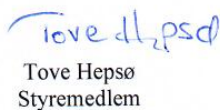 Tove Hepsø
Tove Hepsø
Styremedlem